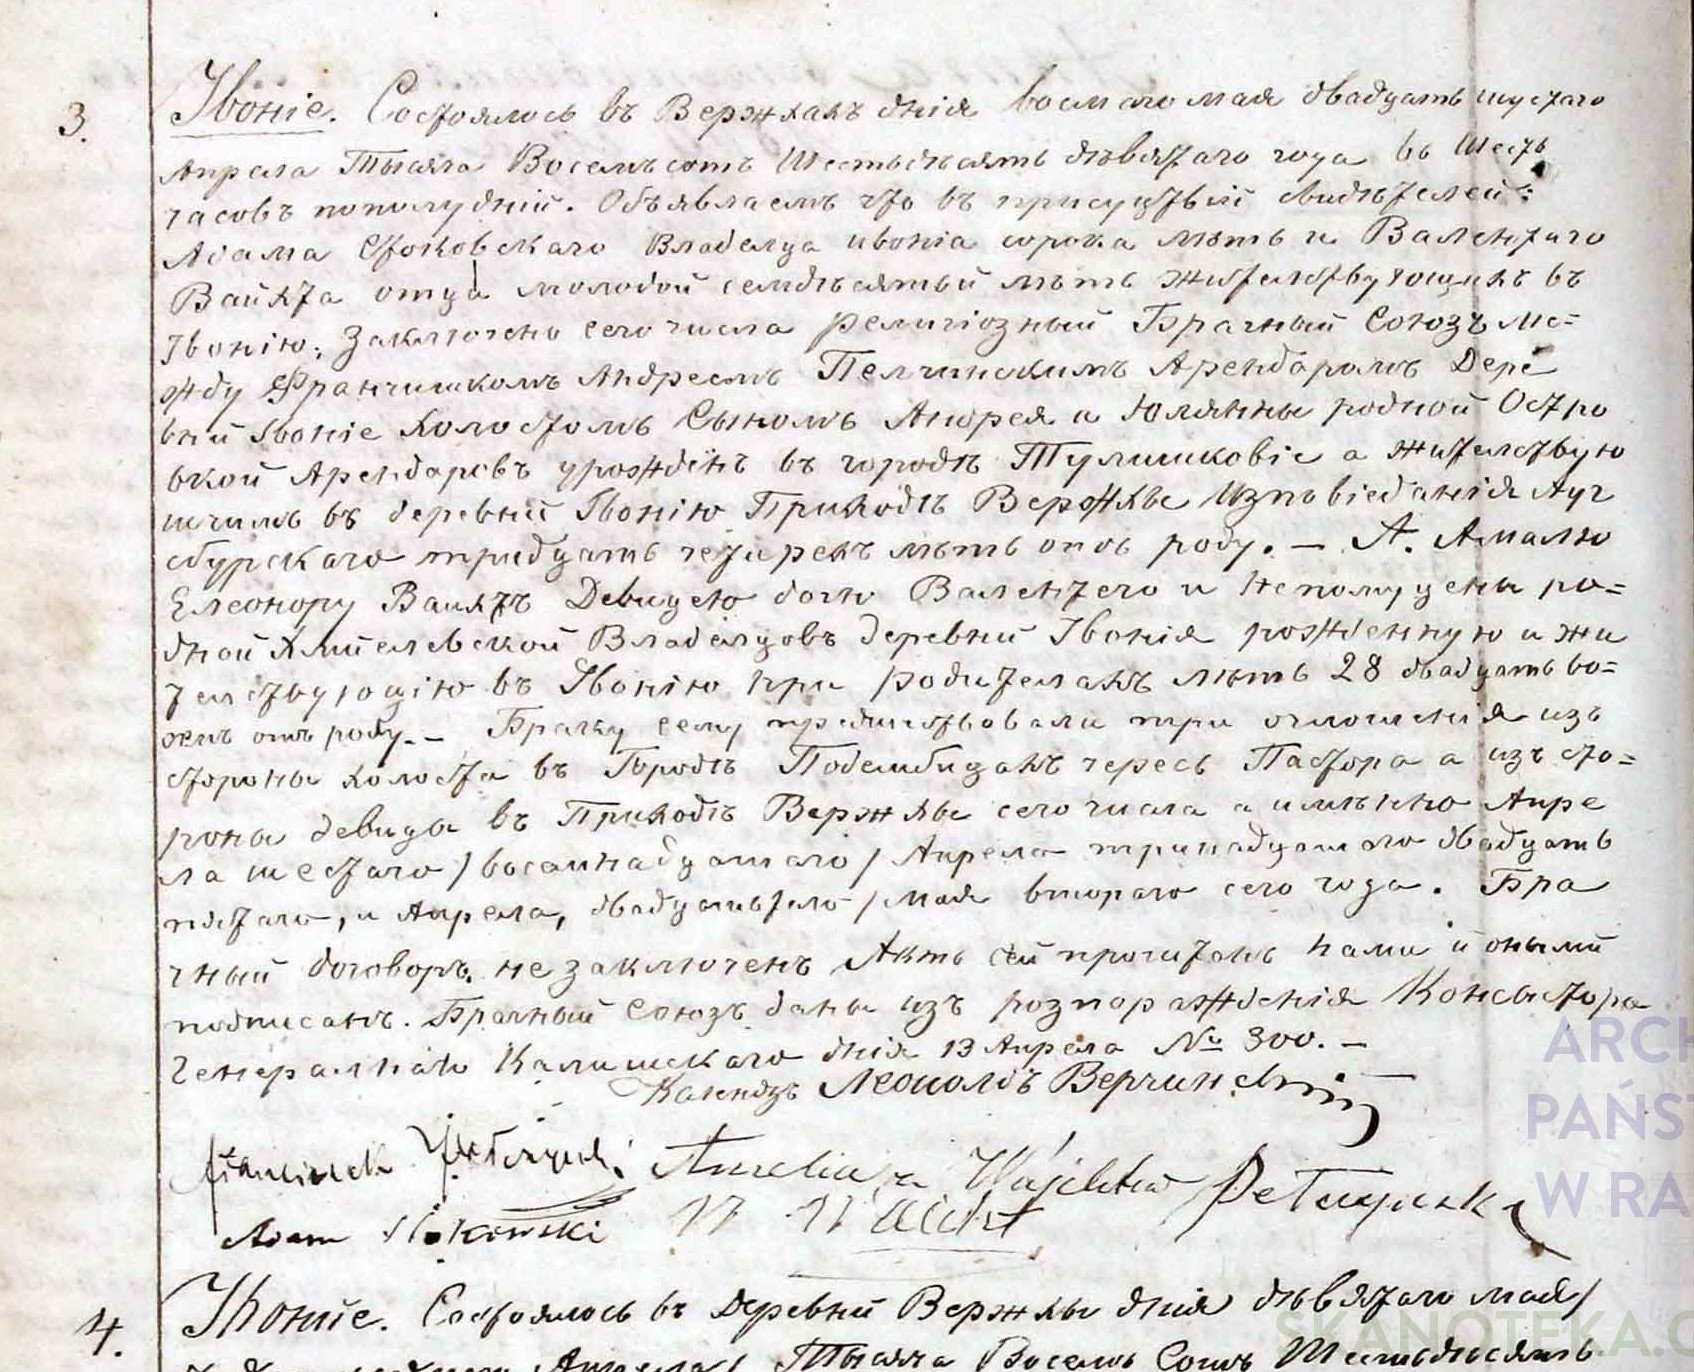 3. Iвонiе. Состоялось въ Вержхахъ днiя восмаго мая двадцать шустаго
Апреля Тысяча Восемъсотъ Шестьдѣсятъ дѣвятаго года въ Шесть
часовъ пополуднiй. Объявляемъ что въ присуцтвiй свидѣтелей:
Адама Стоковскаго Владелца ивонiа сорока лѣтъ и Валентаго
Вайхта отца молодой семдѣсятый лѣтъ жителствующихъ въ
Iвонiю, Заключено сего числа религiозный Брачный Союзъ ме=
жду Францишкомъ Андреемъ Пелчинскимъ Арендаромъ Дере
внй Iвонiе холостомъ Сыномъ Андрея и Юлянны родной Остро
вской Арендаровъ урождѣнъ въ городѣ Тулишковiе а жителствую
шчимъ въ деревнiй Iвонiю Приходѣ Вержхы Изповiеданiя Ауг
сбурскаго тридцать четирехъ лѣтъ отъ роду. — А. Амалю
Елеонору Вайхтъ Девицею дочю Валентего и Непомуцены ро=
дной Хмйелевской Владелцовъ деревнй Iвонiя рожденную и жи
телствующiю въ Iвонiю при родителахъ лѣтъ 28 двадцать во=
семъ отъ роду. — Браку сему предшествовали три оглошенiя изъ
стороны холоста въ Городѣ Подембицахъ чересъ Пастора а изъ сто=
роны девицы въ Приходѣ Вержхы сего числа а имѣнно Апре
ла шестаго / восамнадцатаго / Апрела тринадцатаго двадцать
пятаго, и Апрела, двадцатьтаго / мая втораго сего года. Бра
чный договоръ не заключенъ Актъ сей прочитанъ нами и онымй
подписанъ. Брачный Союзъ даны изъ розпоражденiя Консыстора
Генералнаго Калишскаго днiя 13 Апрела № 300. —
Ксендзъ Леополдъ Верчинскiй
Franciszek Petczynski
Amelia z Wajchtów Petczynska
Adam Stokowski
W Waicht
4. Iвонiе. Состоялось въ Деревнй Вержхы днiя дѣвятаго мая /
Апрела / Тысяча Восемъ Сотъ Шестьдѣсятъ